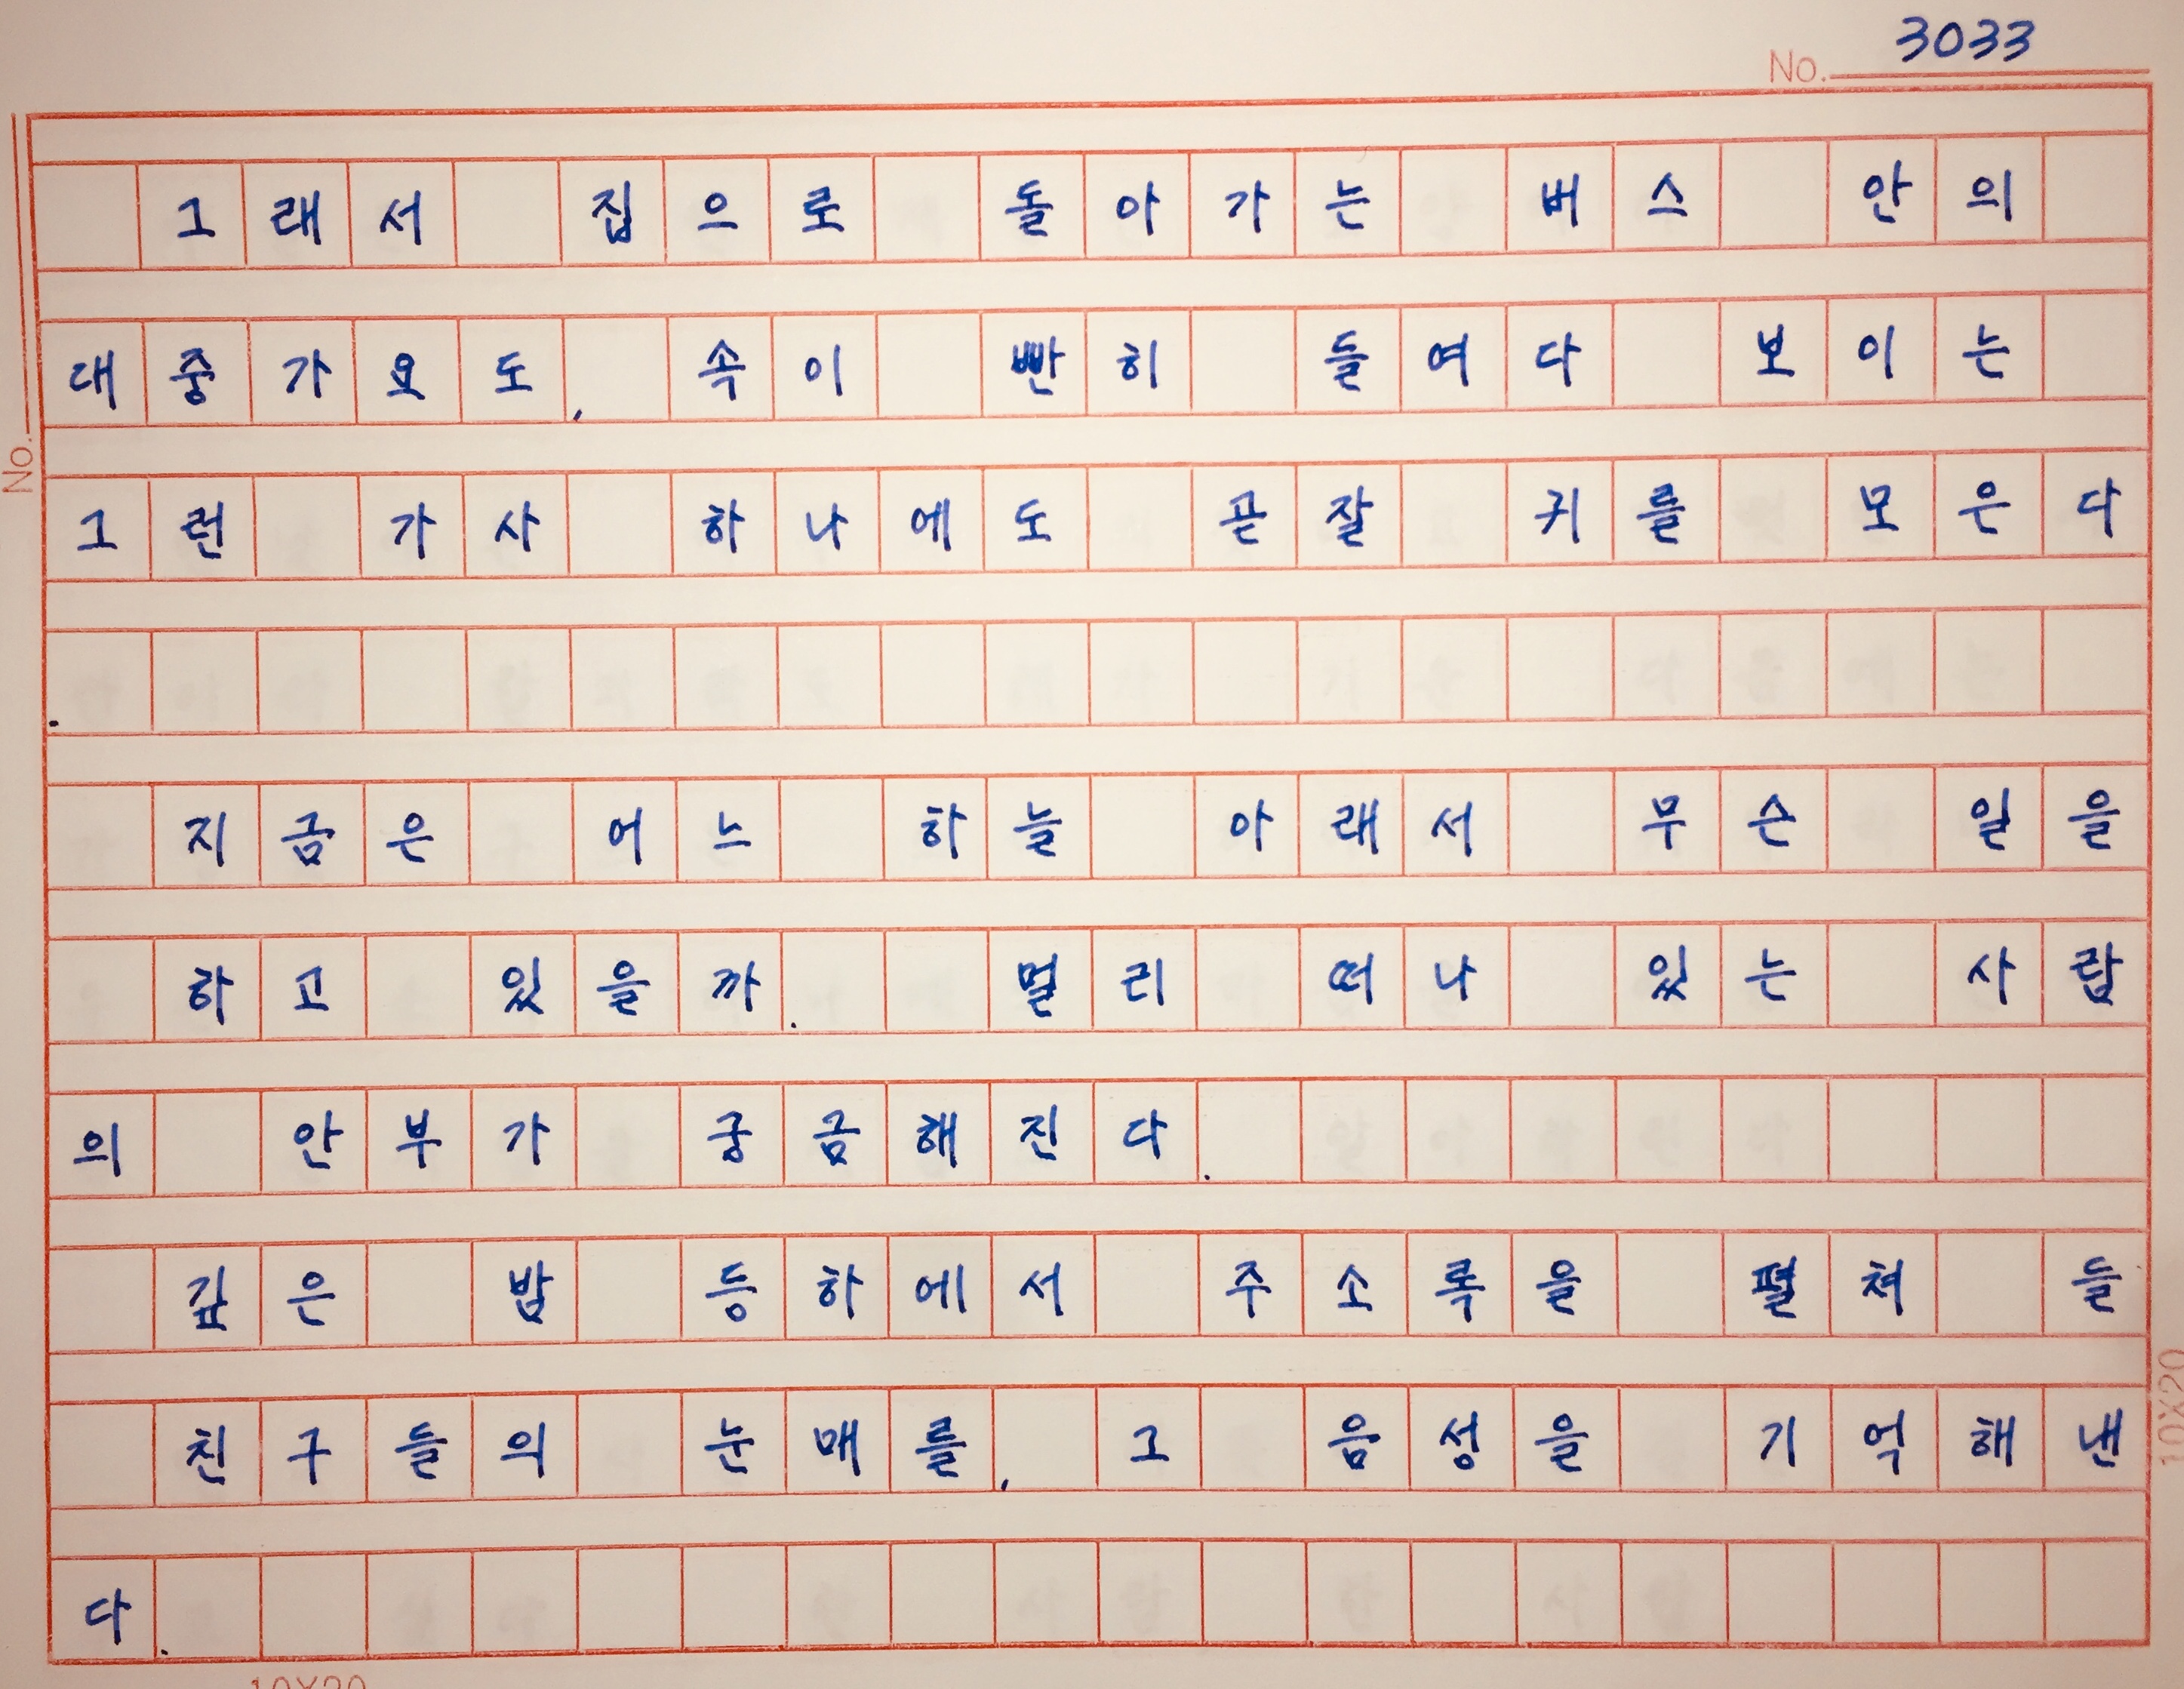 3033
No.
그래서 집으로 돌아가는 버스 안의
대중가요도, 속이 빤히 들여다 보이는
그런 가사 하나에도 곧잘 귀를 모은다
.
지금은 어느 하늘 아래서 무슨 일을
하고 있을까. 멀리 떠나 있는 사람
의 안부가 궁금해진다.
깊은 밤 등하에서 주소록을 펼쳐 들
친구들의 눈매를, 그 음성을 기억해낸
다.
No.
10X20
10X20